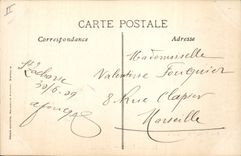 II
CARTE POSTALE
Correspondance
Adresse
Mademoiselle
Valentine Fouquier
8 Rue Clapier
Marseille
30/6/09